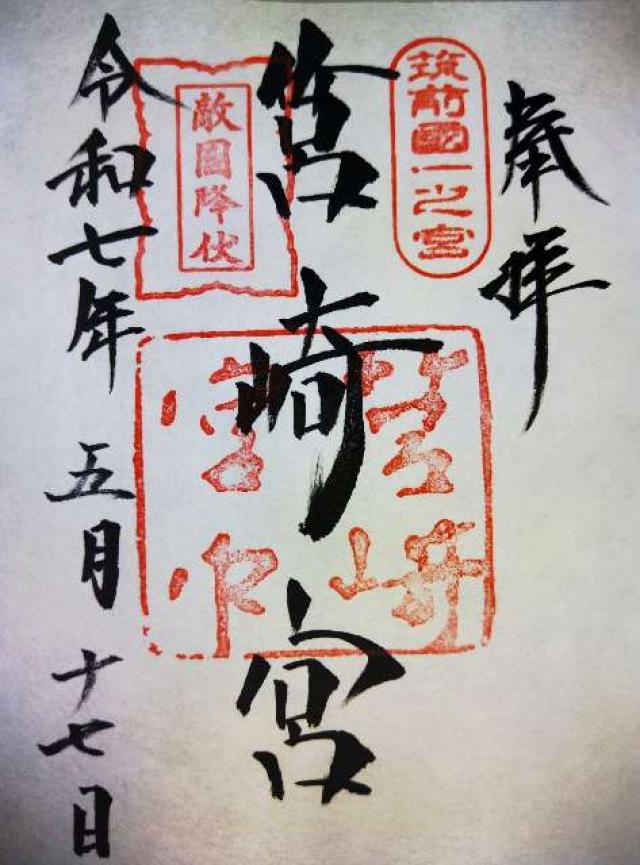 奉拝
筑前國一之宮
筥崎宮
筥崎宮印
敵國降伏
令和七年五月十七日